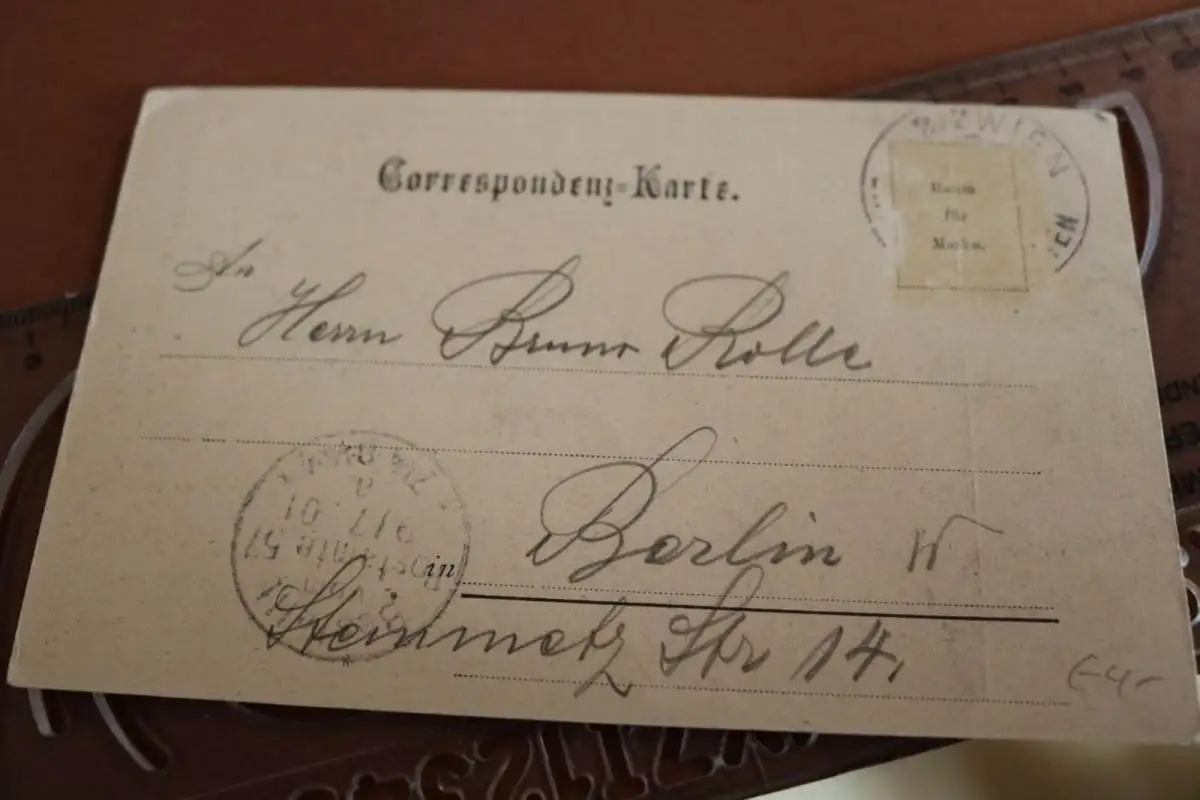 Correspondenz-Karte.
WIEN
Raum
für
Marke.
An
Herrn Bruno Rolle
in Berlin W
Steinmetz Str 14.
Postamte 57
9 17 01